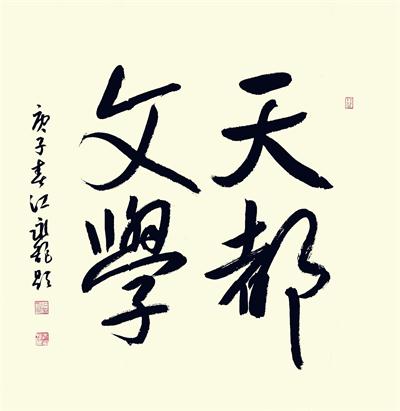 天都
文學
庚子春江泳龍題